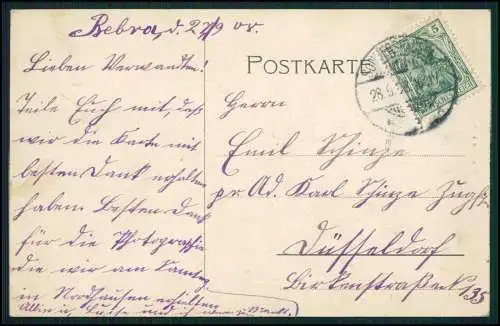 Bebra, d. 27/9 05.
Lieben Verwandten!
Teile Euch mit, daß
wir die Karte mit
besten Dank erhalten
haben. Besten Dank
für die Photographie
die wir am Samstag
in Nordhausen erhielten
Luise und ich
POSTKARTE
5
28.9.
Herrn
Emil Schinze
pr Ad. Karl Schinze
Düsseldorf
Birkenstraße No 135